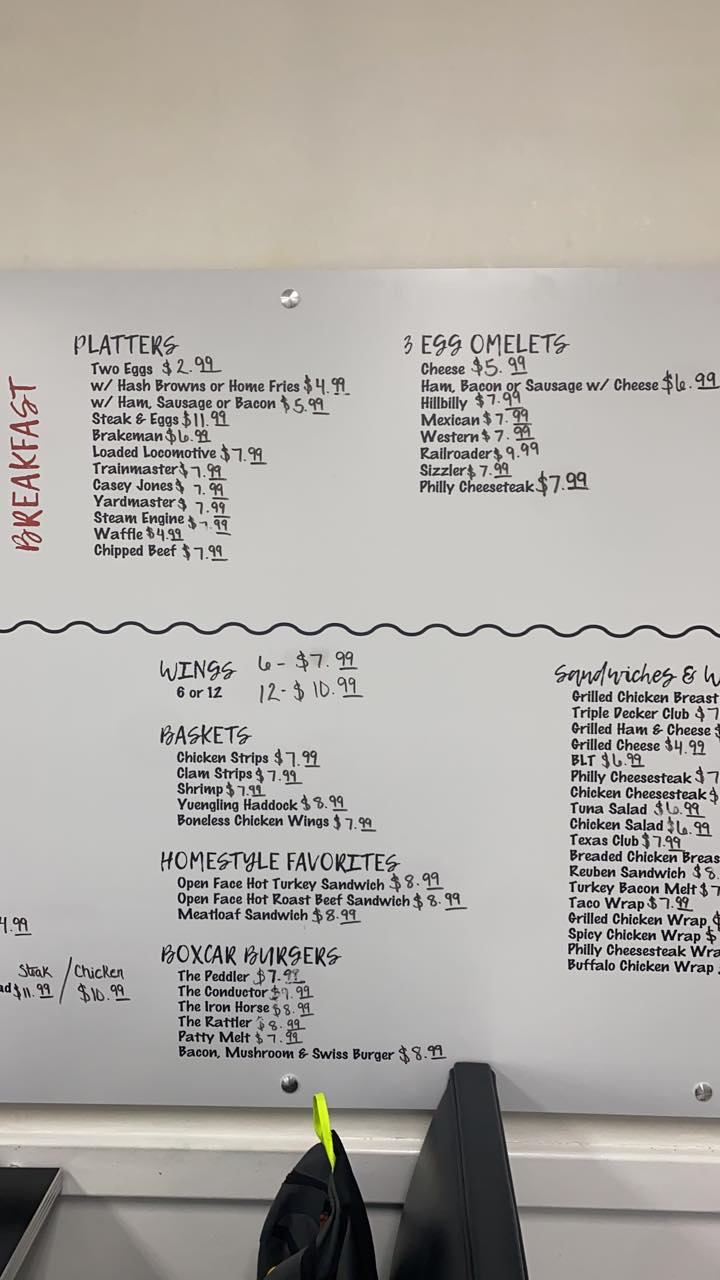 BREAKFAST
PLATTERS
Two Eggs $2.99
w/ Hash Browns or Home Fries $4.99
w/ Ham, Sausage or Bacon $5.99
Steak & Eggs $11.99
Brakeman $6.99
Loaded Locomotive $7.99
Trainmaster $7.99
Casey Jones $7.99
Yardmaster $7.99
Steam Engine $7.99
Waffle $4.99
Chipped Beef $7.99
3 EGG OMELETS
Cheese $5.99
Ham, Bacon or Sausage w/ Cheese $6.99
Hillbilly $7.99
Mexican $7.99
Western $7.99
Railroader $9.99
Sizzler $7.99
Philly Cheeseteak $7.99
4.99
Steak / Chicken
ad $11.99 / $10.99
WINGS 6 - $7.99
6 or 12 12 - $10.99
BASKETS
Chicken Strips $7.99
Clam Strips $7.99
Shrimp $7.99
Yuengling Haddock $8.99
Boneless Chicken Wings $7.99
HOMESTYLE FAVORITES
Open Face Hot Turkey Sandwich $8.99
Open Face Hot Roast Beef Sandwich $8.99
Meatloaf Sandwich $8.99
BOXCAR BURGERS
The Peddler $7.99
The Conductor $7.99
The Iron Horse $8.99
The Rattler $8.99
Patty Melt $7.99
Bacon, Mushroom & Swiss Burger $8.99
Sandwiches & W
Grilled Chicken Breast
Triple Decker Club $7
Grilled Ham & Cheese $
Grilled Cheese $4.99
BLT $6.99
Philly Cheesesteak $7
Chicken Cheesesteak $
Tuna Salad $6.99
Chicken Salad $6.99
Texas Club $7.99
Breaded Chicken Breas
Reuben Sandwich $8.
Turkey Bacon Melt $7
Taco Wrap $7.99
Grilled Chicken Wrap $
Spicy Chicken Wrap $
Philly Cheesesteak Wra
Buffalo Chicken Wrap